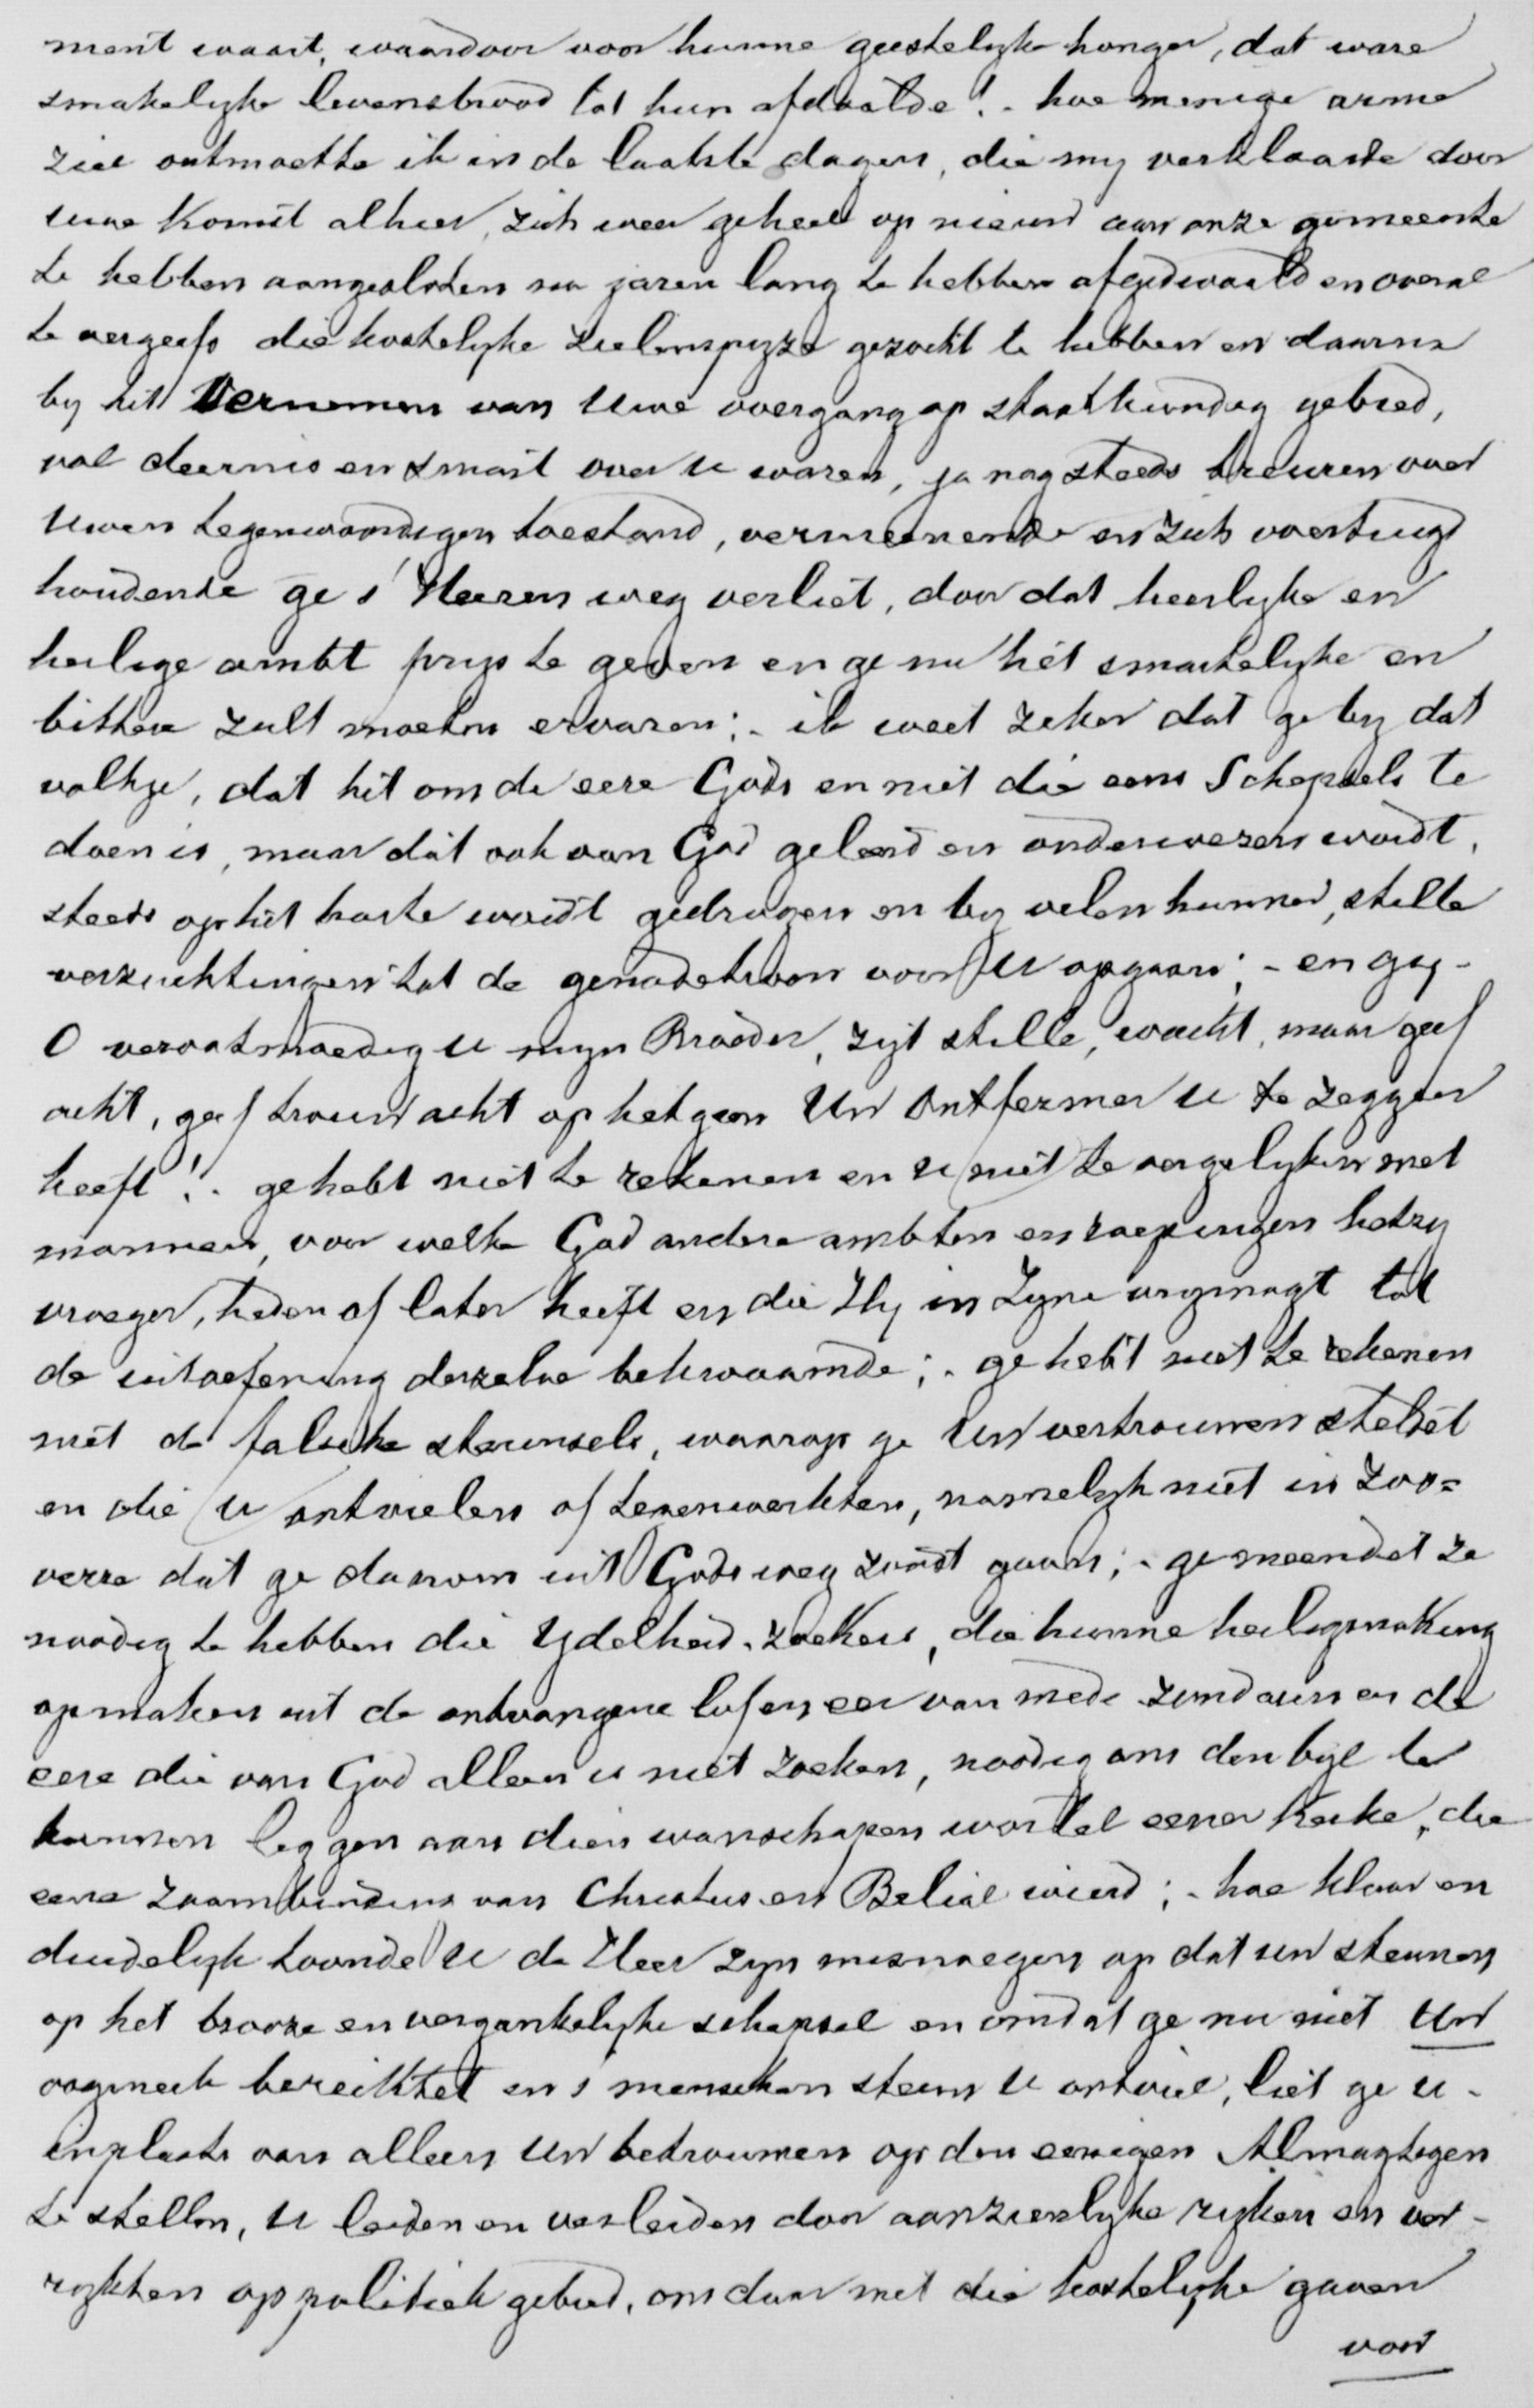 ment waart, waardoor voor hunne geestelyke honger, dat ware
smakelyke levensbrood tot hun afdaalde! - hoe menige arme
ziel ontmoette ik in de laatste dagen, die my verklaarde door
uwe Komst alhier, zich weer geheel op nieuw aan onze gemeente
te hebben aangesloten na jaren lang te hebben afgedwaald en overal
te vergeefs die kostelyke zielenspyze gezocht te hebben en daarna
by het Vernemen van Uwe overgang op staatkundig gebied,
vol deernis en smart over U waren, ja nog steeds treuren over
Uwen tegenwoordigen toestand, vermeenende en zich overtuigd
houdende ge s' Heeren weg verliet, door dat heerlyke en
heilige ambt prys te geven en ge nu hét smartelyke en
bittere zult moeten ervaren; - ik weet zeker dat ge by dat
volkje, dat hét om de eere Gods en niet die eens Schepsels te
doen is, maar dát ook van God geleerd en onderwezen wordt,
steeds op hét harte wordt gedragen en by velen hunner, stille
verzuchtingen tot de genadetroon voor U opgaan; - en gy -
O verootmoedig U myn Broeder, zyt stille, wacht, maar geef
acht, geef trouw acht op hetgeen Uw Ontfermer U te zeggen
heeft! - ge hebt niet te rekenen en U niet te vergelyken met
mannen, voor welke God andere ambten en roepingen hetzy
vroeger, heden of later heeft en die Hy in Zyne vrymagt tot
de uitoefening derzelve bekwaamde; - ge hebt niet te rekenen
mét de falsche steunsels, waarop ge Uw vertrouwen steldet
en die U ontvielen of tegenwerkten, namelyk niet in zoo=
verre dat ge daarom uit Gods weg zoudt gaan; - ge meendet ze
noodig te hebben die Ydelheid-zoekers, die hunne heiligmaking
opmaken uit de ontvangene lof en eer van mede zondaren en de
eere die van God alleen is niet zoeken, noodig om den byl te
kunnen leggen aan dien wanschapen wortel eener Kerke, die
eene zaambinding van Christus en Belial wierd; - hoe klaar en
duidelyk toonde U de Heer zyn misnoegen op dat uw steunen
op het brooze en vergankelyke schepsel en omdat ge nu niet Uw
oogmerk bereiktet en s' menschen steun U ontviel, liet ge U -
inplaats van alleen Uw betrouwen op den eenigen Almagtigen
te stellen, U leiden en verleiden door aanzienlyke ryken en ver-
rykten op politiek gebied, om daar met die kostelyke gaven
voor